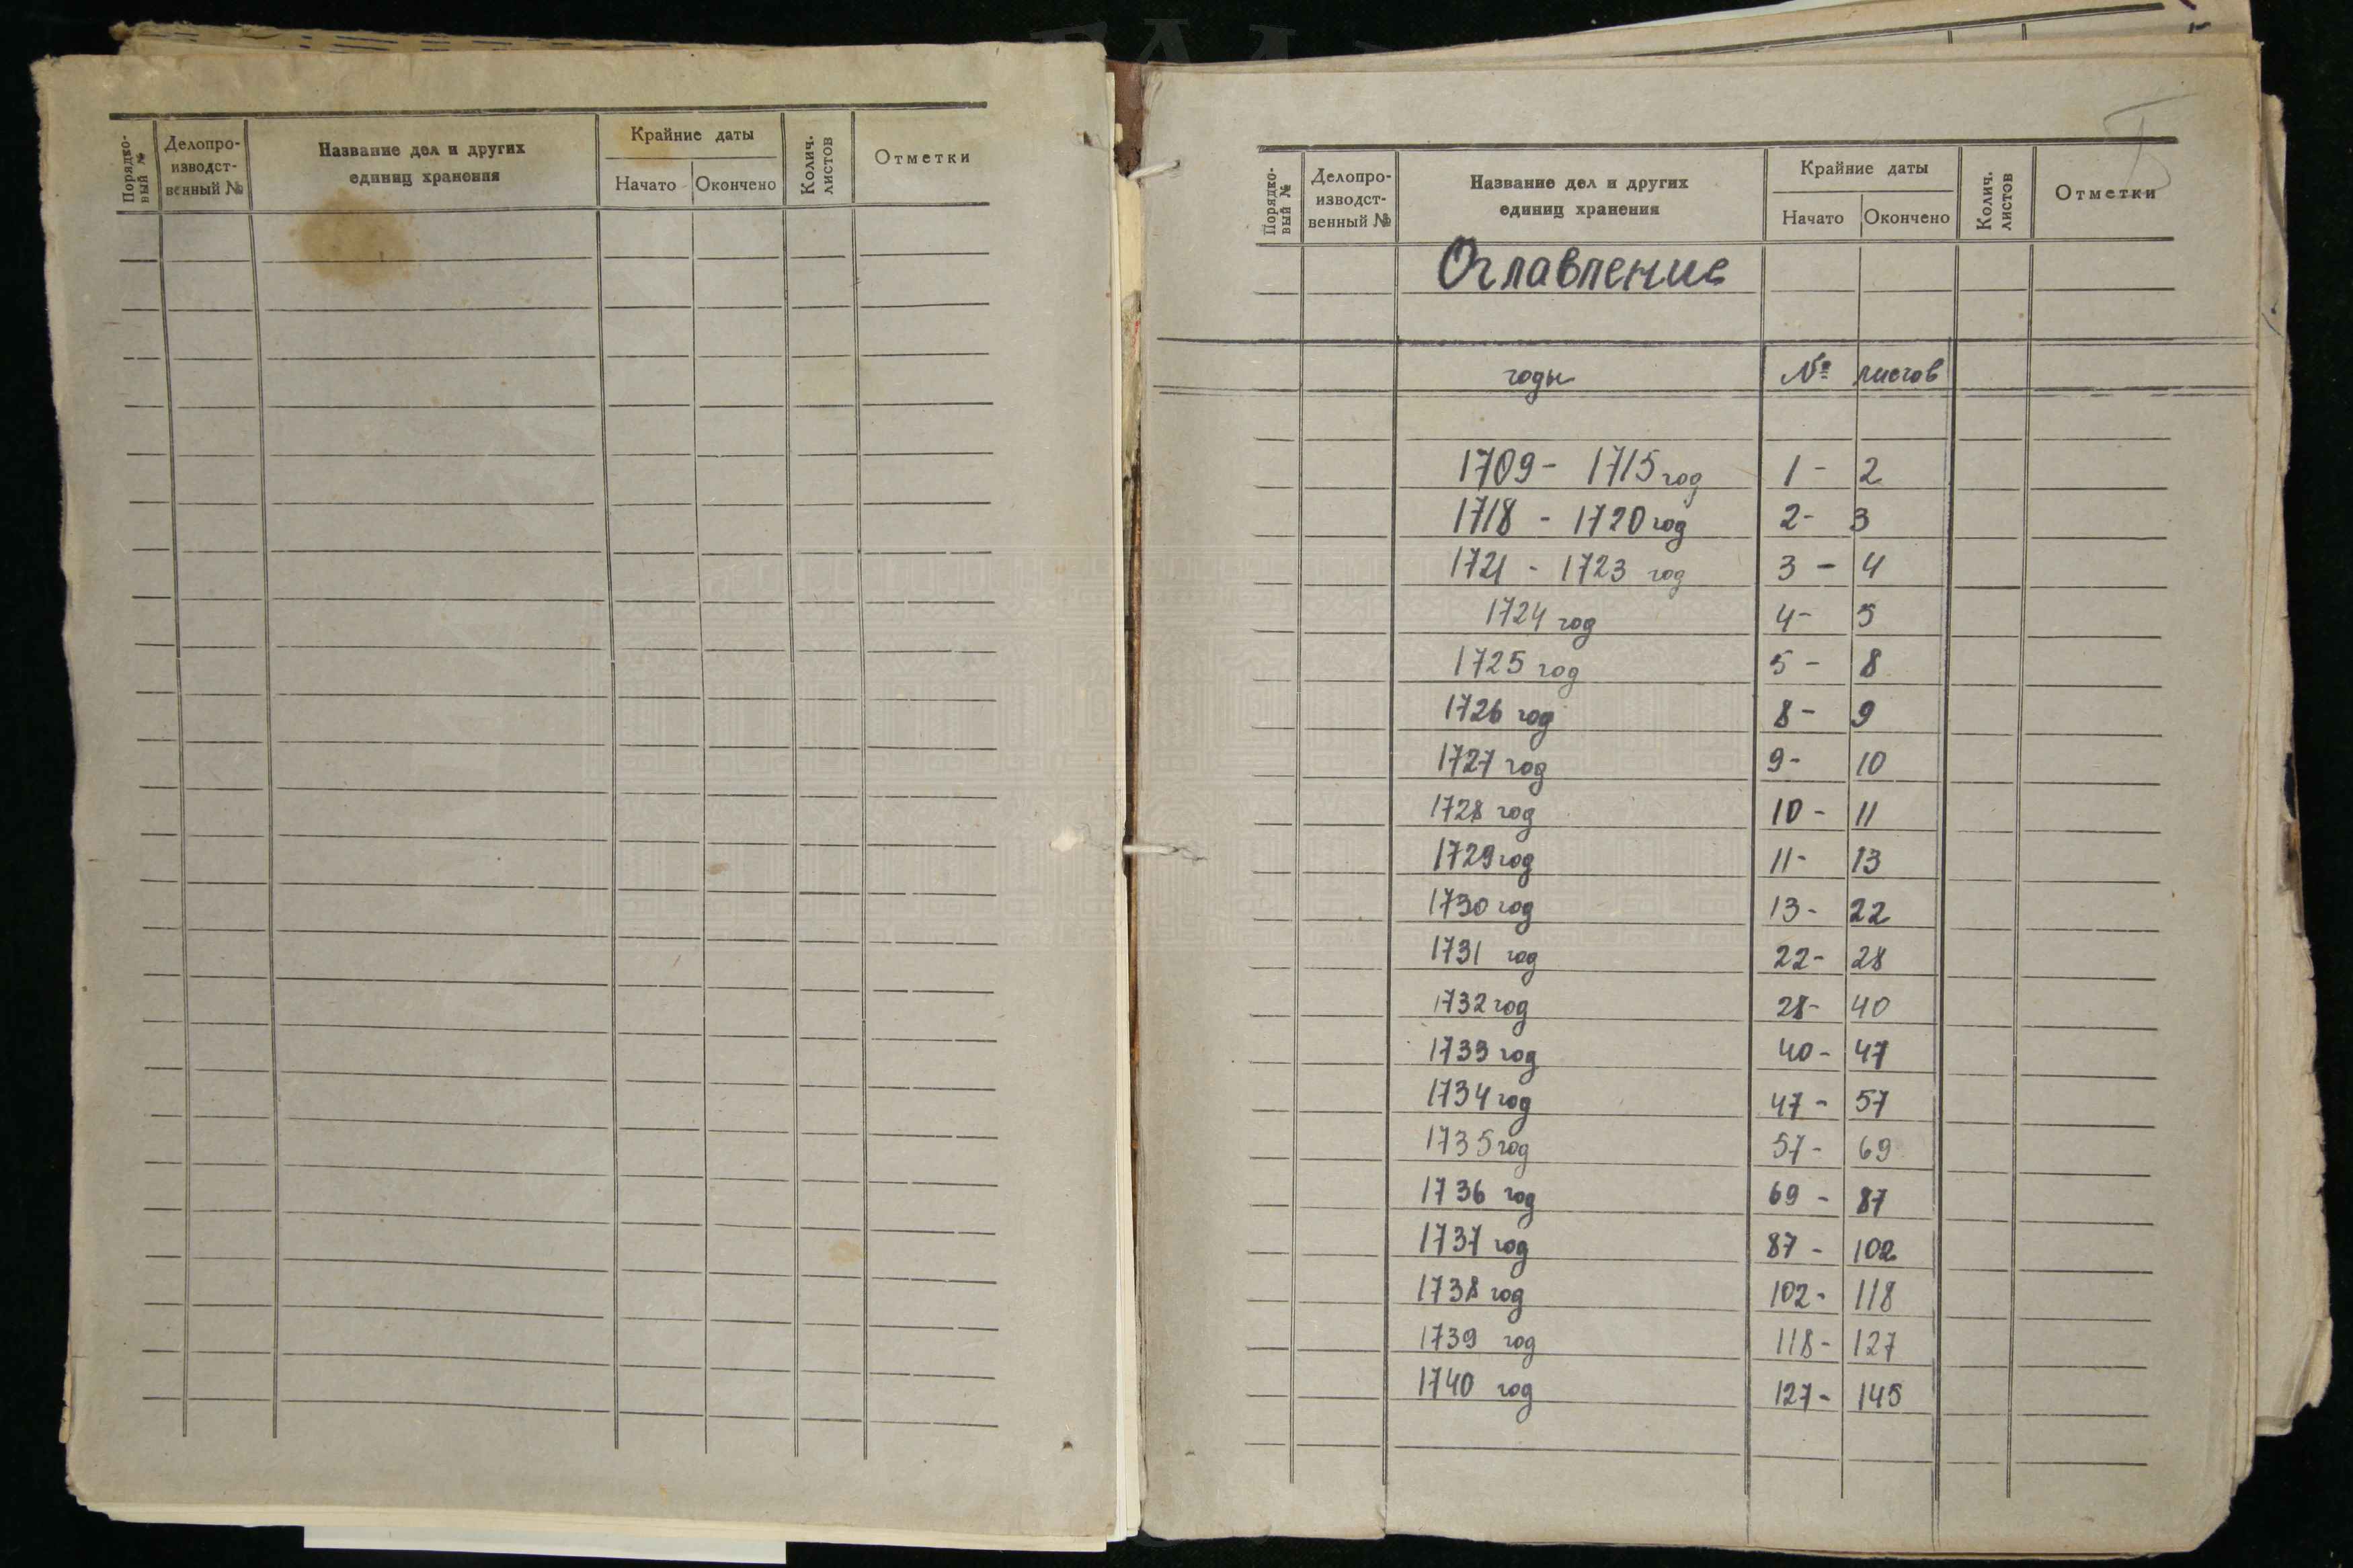 Порядко-
вый №
Делопро-
изводст-
венный №
Название дел и других
единиц хранения
Крайние даты
Начато
Окончено
Колич.
листов
Отметки
Порядко-
вый №
Делопро-
изводст-
венный №
Название дел и других
единиц хранения
Крайние даты
Начато
Окончено
Колич.
листов
Отметки
Оглавление
годы № листов
1709 - 1715 год 1 - 2
1718 - 1720 год 2 - 3
1721 - 1723 год 3 - 4
1724 год 4 - 5
1725 год 5 - 8
1726 год 8 - 9
1727 год 9 - 10
1728 год 10 - 11
1729 год 11 - 13
1730 год 13 - 22
1731 год 22 - 28
1732 год 28 - 40
1733 год 40 - 47
1734 год 47 - 57
1735 год 57 - 69
1736 год 69 - 87
1737 год 87 - 102
1738 год 102 - 118
1739 год 118 - 127
1740 год 127 - 145